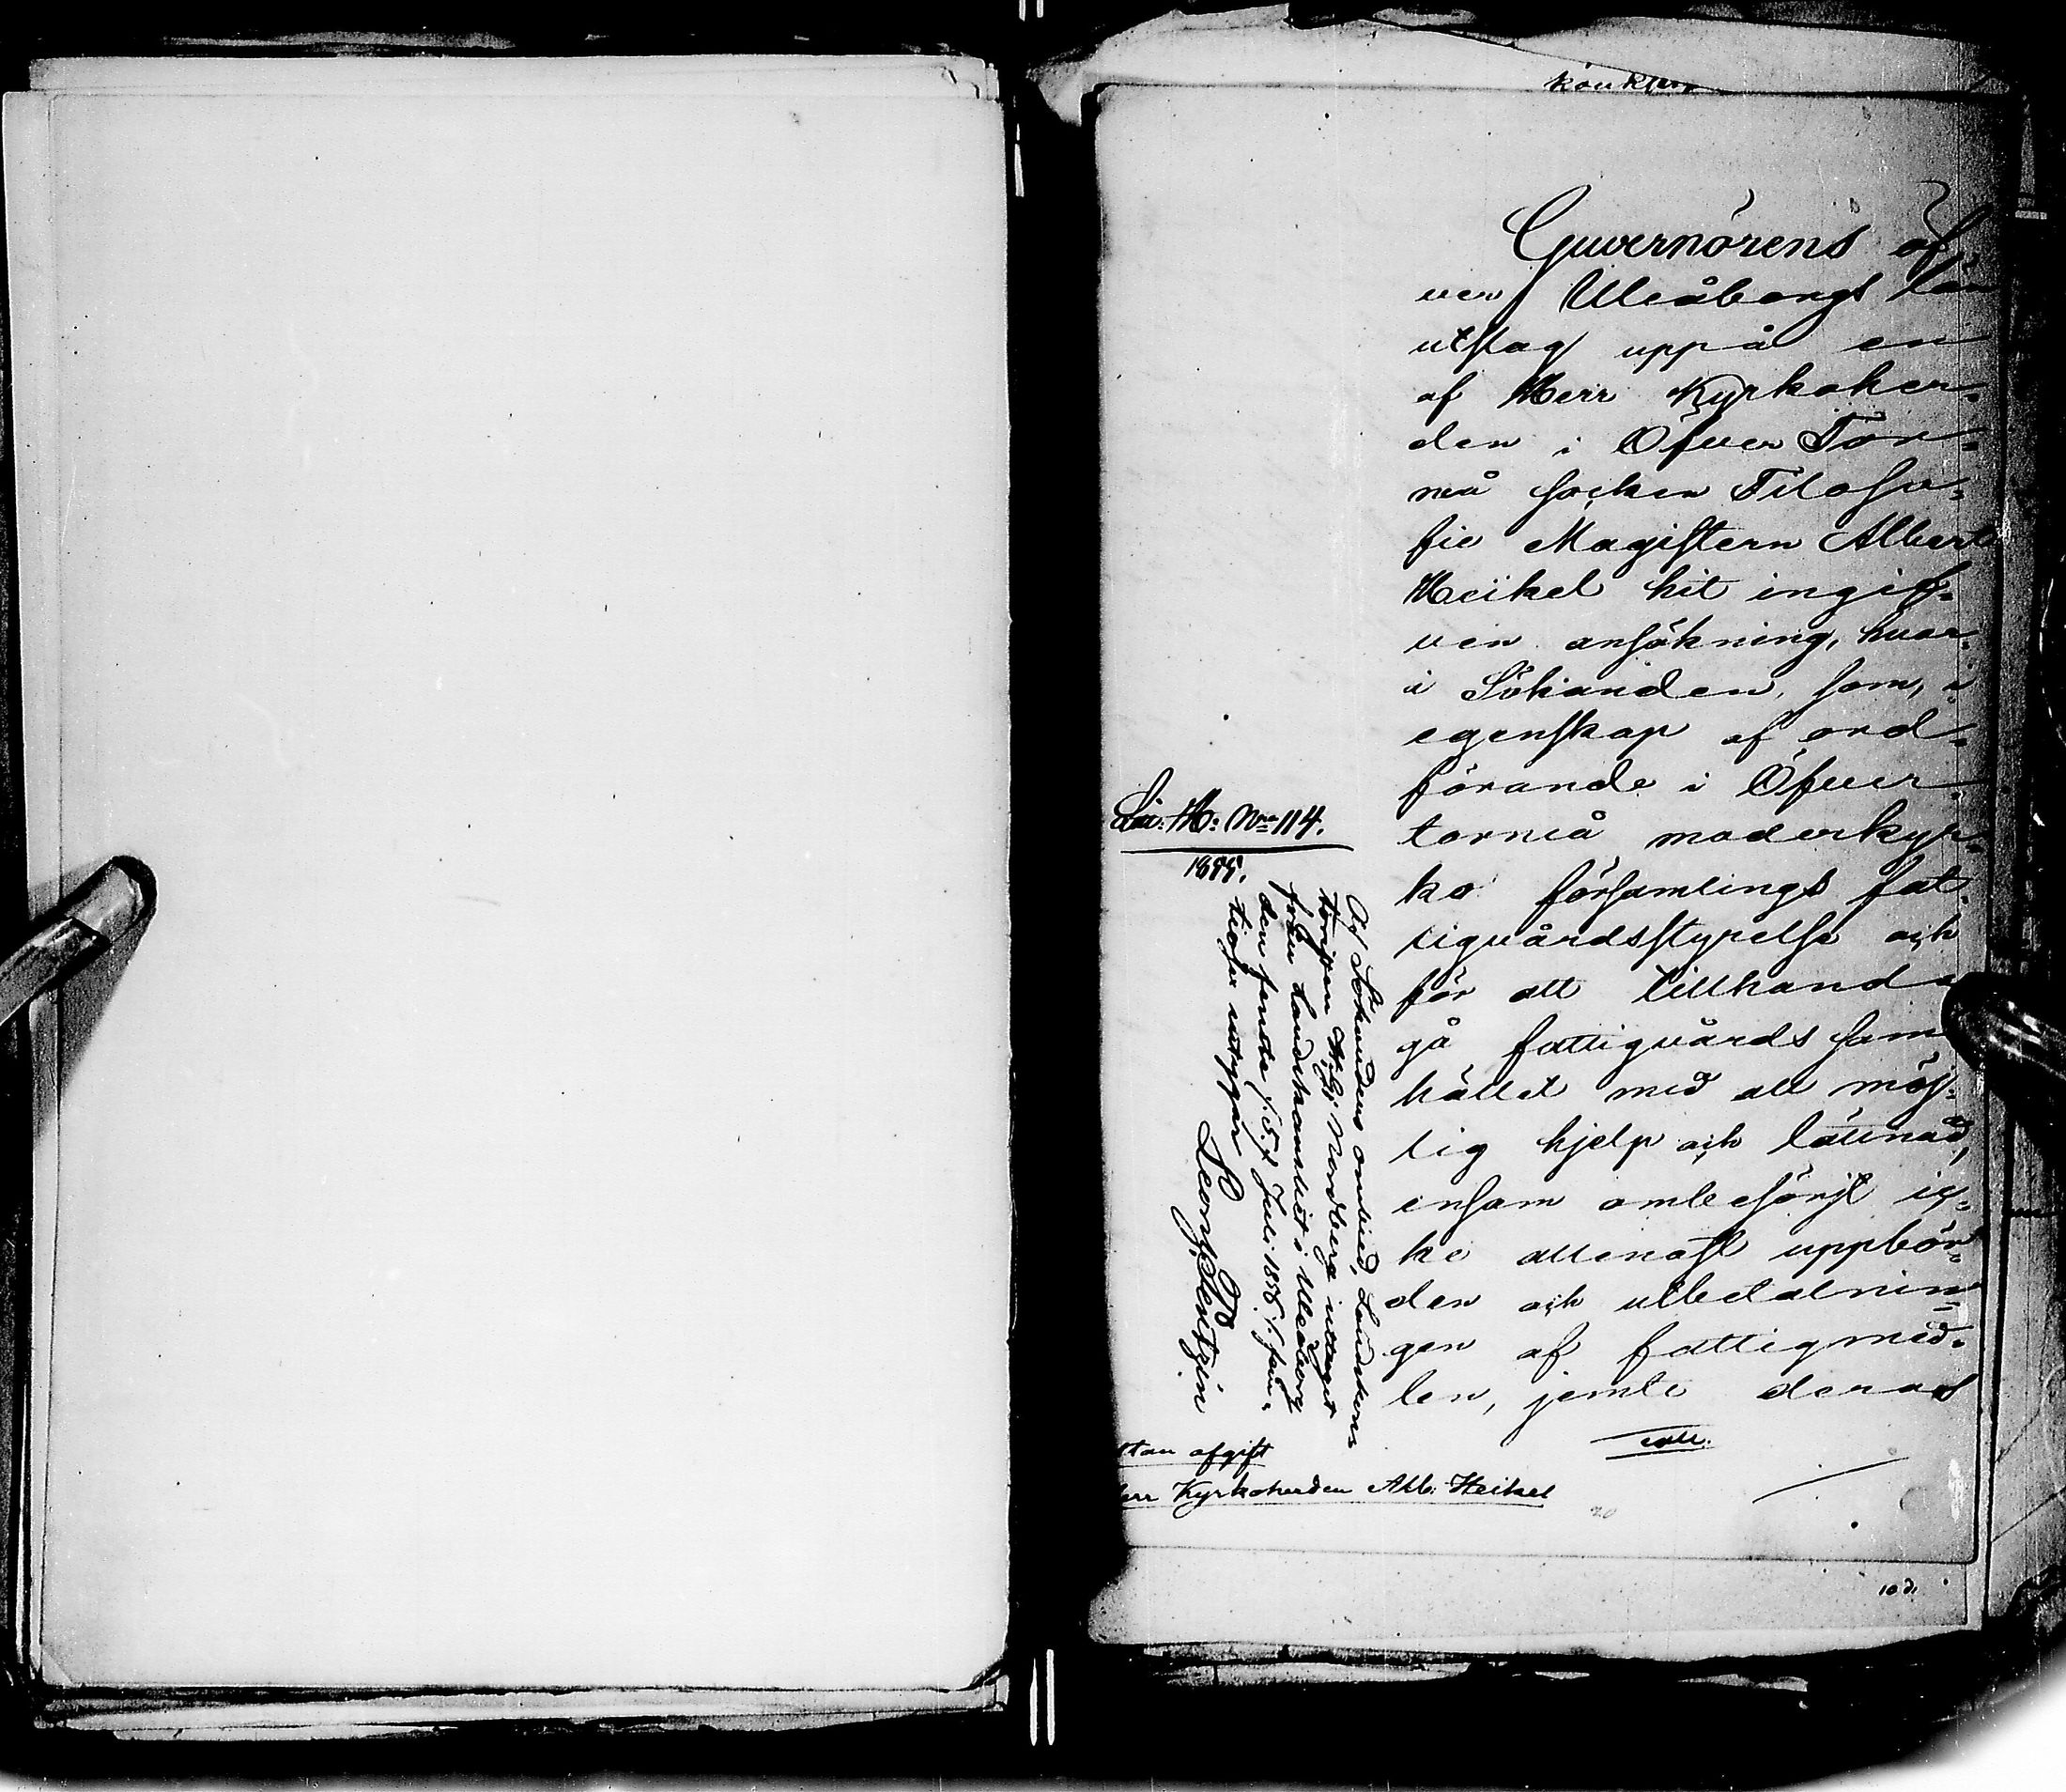 Guvernörens öf-
ver Uleåborgs län
utslag uppå en
af Herr Kyrkoher-
den i Öfver Tor-
neå socken Filoso-
fie Magistern Albert
Heikel hit ingif-
ven ansökning, hvar-
i Sökanden, som, i
egenskap af ord-
förande i Öfver-
torneå moderkyr-
ko församlings fat-
tigvårdsstyrelse och
för att tillhanda
gå fattigvårds sam
hället med all möj-
lig hjelp och lättnad,
ensam ombesörjt ic-
ke allenast uppbör-
den och utbetalnin-
gen af fattigmed-
len, jemte deras
Litt: H: No 114.
1888.
Af Sökandens ombud, Landskons
toristen H. G. Nordberg uttaget
från Landskansliet i Uleåborg
den femte /:5:/ Juli 188
tiofu intygar
ttan afgift
err Kyrkoherden Alb: Heikel
20
10 d.